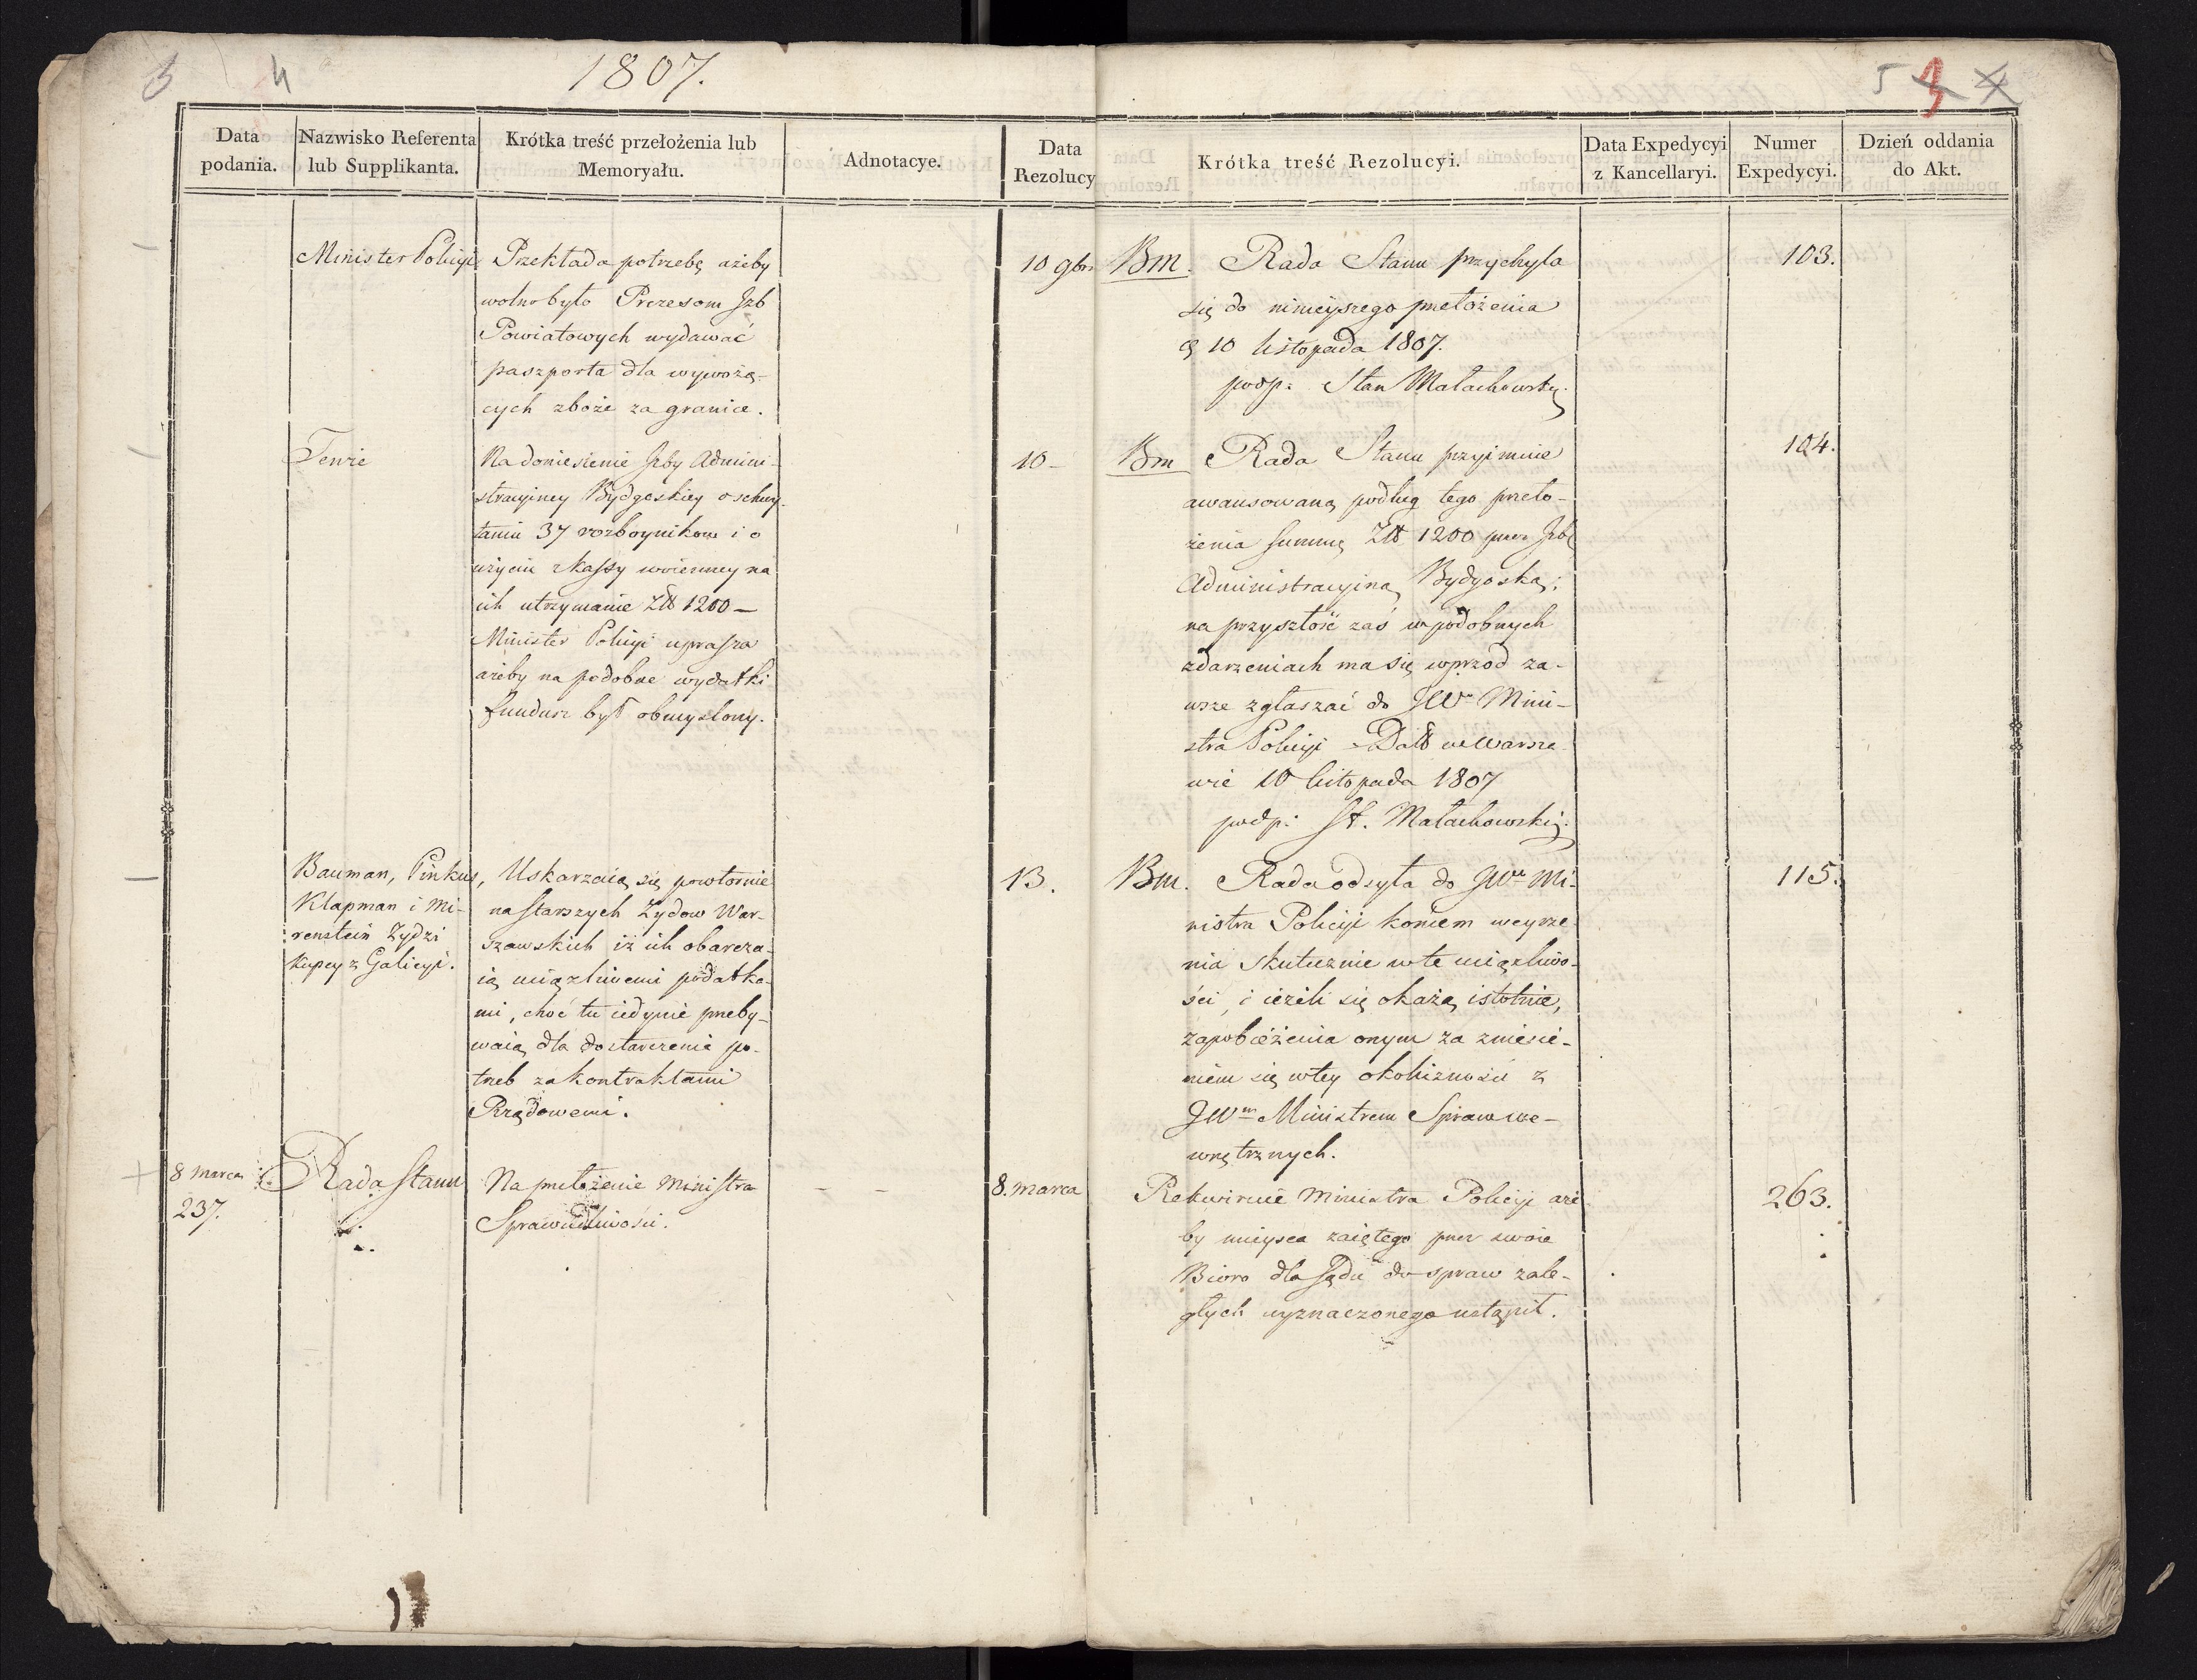 4
1807.
5
Data podania.
Nazwisko Referenta lub Supplikanta.
Krótka treść przełożenia lub Memoryału.
Adnotacye.
Data Rezolucy
Krótka treść Rezolucyi.
Data Expedycyi z Kancellaryi.
Numer Expedycyi.
Dzień oddania do Akt.
Minister Policyi
Przekłada potrzebę ażeby
wolno było Prezesom Jzb
Powiatowych wydawać
paszporta dla wywożą-
cych zboże za granice.
10 9br
Bm. Rada Stanu przychyla
się do ninieyszego przełożenia
10 listopada 1807.
podp: Stan Małachowski
103.
Tenże
Na doniesienie Jzby Admini-
stracyiney Bydgoskiey o schwy-
taniu 37 rozboynikow i o
użyciu z kassy woienney na
ich utrzymanie Złt 1200 –
Minister Policyi uprasza
ażeby na podobne wydatki
fundusz był obmyslony.
10 –
Bm Rada Stanu przyimuie
awansowaną podług tego przeło-
żenia summę Złt 1200 przez Jzbę
Administracyiną Bydgoską;
na przyszłość zaś w podobnych
zdarzeniach ma się wprzod za-
wsze zgłaszać do JW Mini-
stra Policyi – Datt w Warsza-
wie 10 listopada 1807
podp: St. Małachowski.
104.
Bauman, Pinkus,
Klapman i Mi-
renstein Zydzi
kupcy z Galicyi.
Uskarzaią się powtornie
na starszych Zydow War-
szawskich iż ich obarcza-
ią uciązliwemi podatka-
mi, choć tu iedynie przeby-
waią dla dostarczenia po-
trzeb za kontraktami
Rządowemi.
13.
Bm. Rada odsyła do JW Mi-
nistra Policyi koncem weyrze-
nia skutecznie w te uciążliwo-
ści, i ieżeli się okażą istotnie,
zapobieżenia onym za zniesie-
niem się w tey okoliczności z
JWm Ministrem Spraw we-
wnętrznych.
115.
8 marca
237.
Rada Stanu
Na przełożenie Ministra
Sprawiedliwości.
8. marca
Rekwiruie Ministra Policyi aże-
by mieysca zaiętego przez swoie
Biuro dla Sądu do spraw zale-
głych wyznaczonego ustąpił.
263.